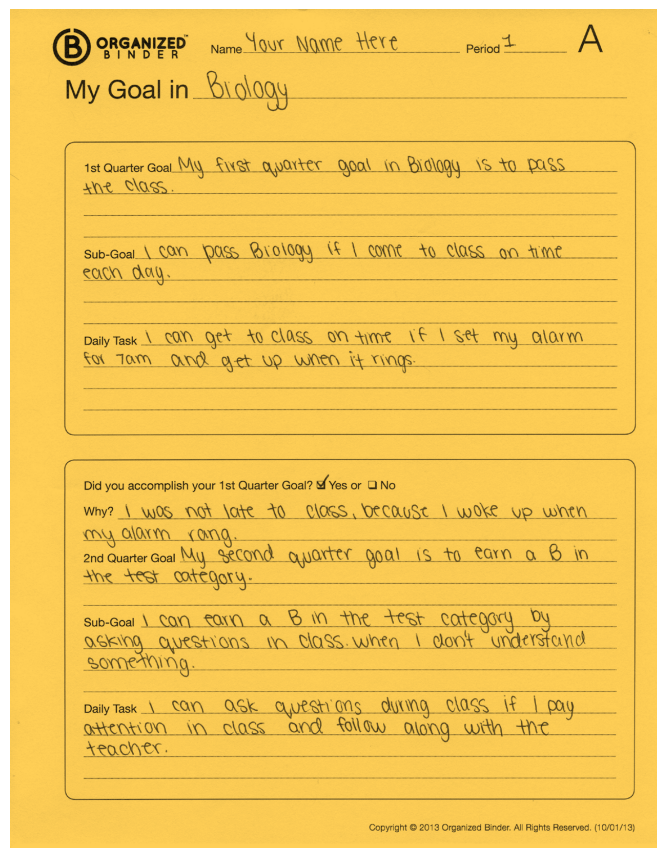 B ORGANIZED™
BINDER
Name Your Name Here Period 1 A
My Goal in Biology
1st Quarter Goal My first quarter goal in Biology is to pass
the class.
Sub-Goal I can pass Biology if I come to class on time
each day.
Daily Task I can get to class on time if I set my alarm
for 7am and get up when it rings.
Did you accomplish your 1st Quarter Goal? ☑ Yes or ☐ No
Why? I was not late to class, because I woke up when
my alarm rang.
2nd Quarter Goal My second quarter goal is to earn a B in
the test category.
Sub-Goal I can earn a B in the test category by
asking questions in class. when I don't understand
something.
Daily Task I can ask questions during class if I pay
attention in class and follow along with the
teacher.
Copyright © 2013 Organized Binder. All Rights Reserved. (10/01/13)